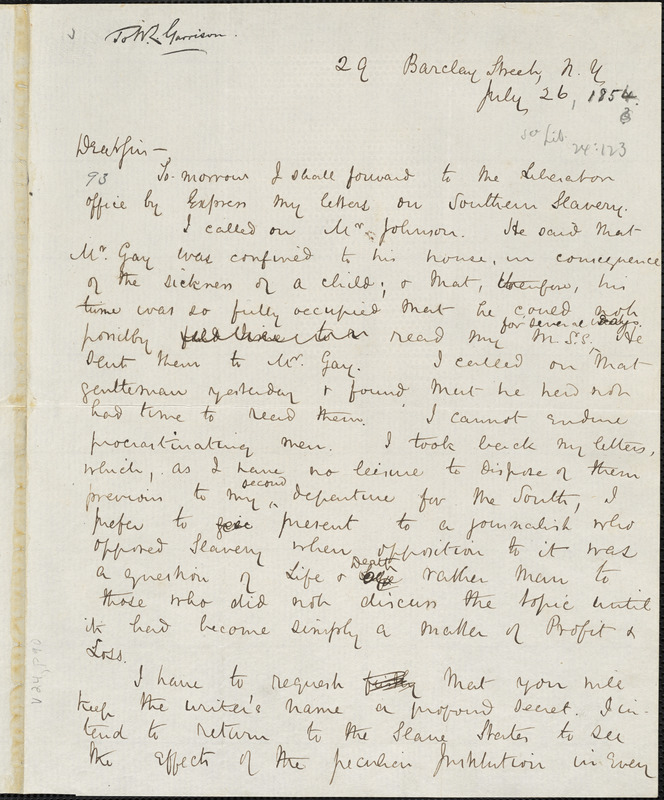 To W. L. Garrison.
29 Barclay Street, N. Y
July 26, 1854.
3
see Lib.
24:123
Dear Sir —
93 To-morrow I shall forward to the Liberator
office by Express my letters on Southern Slavery.
I called on Mr. Johnson. He said that
Mr. Gay was confined to his house, in consequence
of the sickness of a child; & that, therefore, his
time was so fully occupied that he could not
possibly read my M.S.S. for several days. He
sent them to Mr. Gay. I called on that
gentleman yesterday & found that he had not
had time to read them. I cannot endure
procrastinating men. I took back my letters,
which, as I have no leisure to dispose of them
previous to my second departure for the South, I
prefer to present to a journalist who
opposed Slavery when opposition to it was
a question of Life & Death rather than to
those who did not discuss the topic until
it had become simply a matter of Profit &
Loss.
I have to request that you will
keep the writer's name a profound secret. I in-
tend to return to the Slave States to see
the Effects of the peculiar Institution in Every